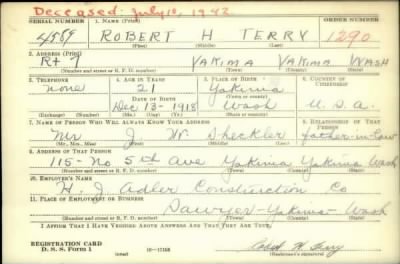 Deceased: July 10, 1942
SERIAL NUMBER 1. NAME (Print) ORDER NUMBER
4589 ROBERT H TERRY 1290
(First) (Middle) (Last)
2. ADDRESS (Print)
Rt 7 YAKIMA YAKIMA WASH
(Number and street or R. F. D. number) (Town) (County) (State)
3. TELEPHONE 4. AGE IN YEARS 5. PLACE OF BIRTH 6. COUNTRY OF CITIZENSHIP
None 21 Yakima
DATE OF BIRTH (Town or county)
Dec 13 - 1918 Wash U. S. A.
(Exchange) (Number) (Mo.) (Day) (Yr.) (State or country)
7. NAME OF PERSON WHO WILL ALWAYS KNOW YOUR ADDRESS 8. RELATIONSHIP OF THAT PERSON
Mr J W Sheckler father-in-law
(Mr., Mrs., Miss) (First) (Middle) (Last)
9. ADDRESS OF THAT PERSON
115 - No 5th Ave Yakima Yakima Wash
(Number and street or R. F. D. number) (Town) (County) (State)
10. EMPLOYER'S NAME
H. J. Adler Construction Co
11. PLACE OF EMPLOYMENT OR BUSINESS
Sawyer - Yakima - Wash
(Number and street or R. F. D. number) (Town) (County) (State)
I AFFIRM THAT I HAVE VERIFIED ABOVE ANSWERS AND THAT THEY ARE TRUE.
REGISTRATION CARD
D. S. S. Form 1 16-17105 Robert H Terry
(Registrant's signature)